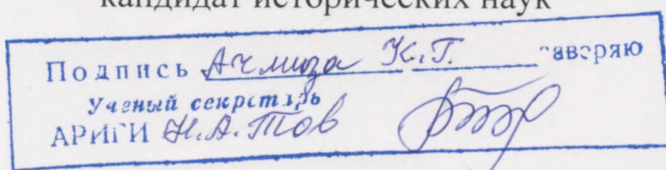 кандидат исторических наук
Подпись Ачмиза К.Г. заверяю
Ученый секретарь
АРИГИ Н.А. Тов